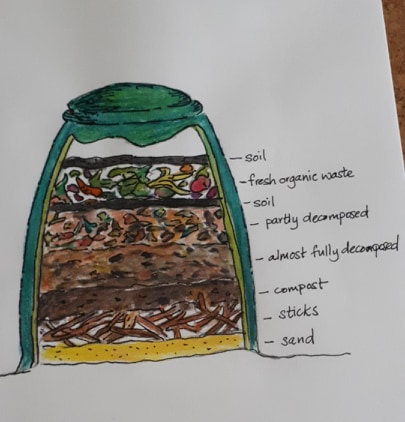 soil
fresh organic waste
soil
partly decomposed
almost fully decomposed
compost
sticks
sand